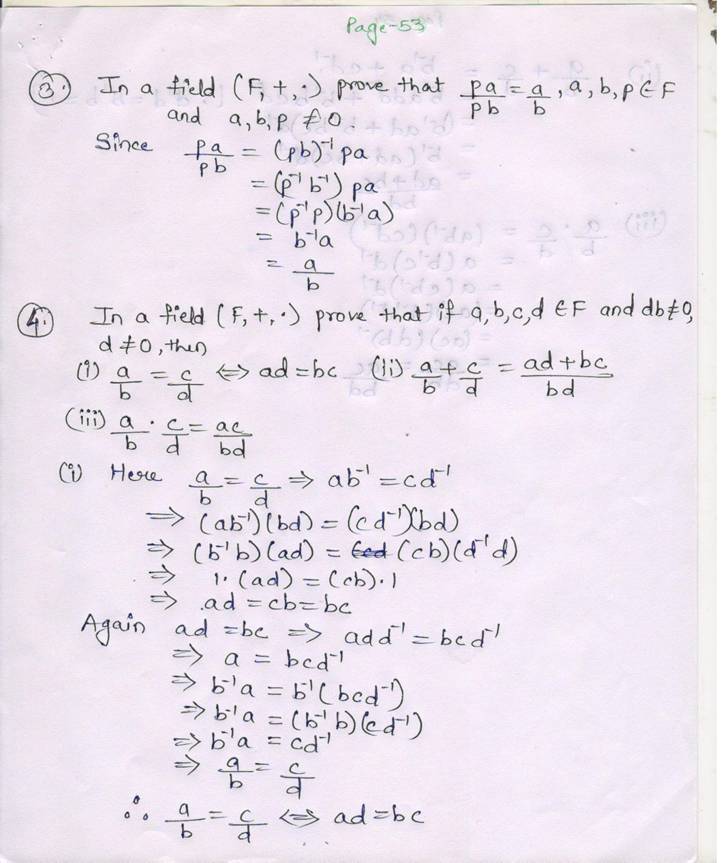 Page-53
③. In a field (F, +, ·) prove that pa/pb = a/b, a, b, p ∈ F
and a, b, p ≠ 0.
Since pa/pb = (pb)⁻¹ pa
= (p⁻¹ b⁻¹) pa
= (p⁻¹p)(b⁻¹a)
= b⁻¹a
= a/b
④. In a field (F, +, ·) prove that if a, b, c, d ∈ F and db ≠ 0,
d ≠ 0, then
(i) a/b = c/d ⇔ ad = bc (ii) a/b + c/d = ad + bc/bd
(iii) a/b · c/d = ac/bd
(i) Here a/b = c/d ⇒ ab⁻¹ = cd⁻¹
⇒ (ab⁻¹)(bd) = (cd⁻¹)(bd)
⇒ (b⁻¹b)(ad) = (cb)(d⁻¹d)
⇒ 1·(ad) = (cb)·1
⇒ ad = cb = bc
Again ad = bc ⇒ add⁻¹ = bcd⁻¹
⇒ a = bcd⁻¹
⇒ b⁻¹a = b⁻¹(bcd⁻¹)
⇒ b⁻¹a = (b⁻¹b)(cd⁻¹)
⇒ b⁻¹a = cd⁻¹
⇒ a/b = c/d
∴ a/b = c/d ⇔ ad = bc